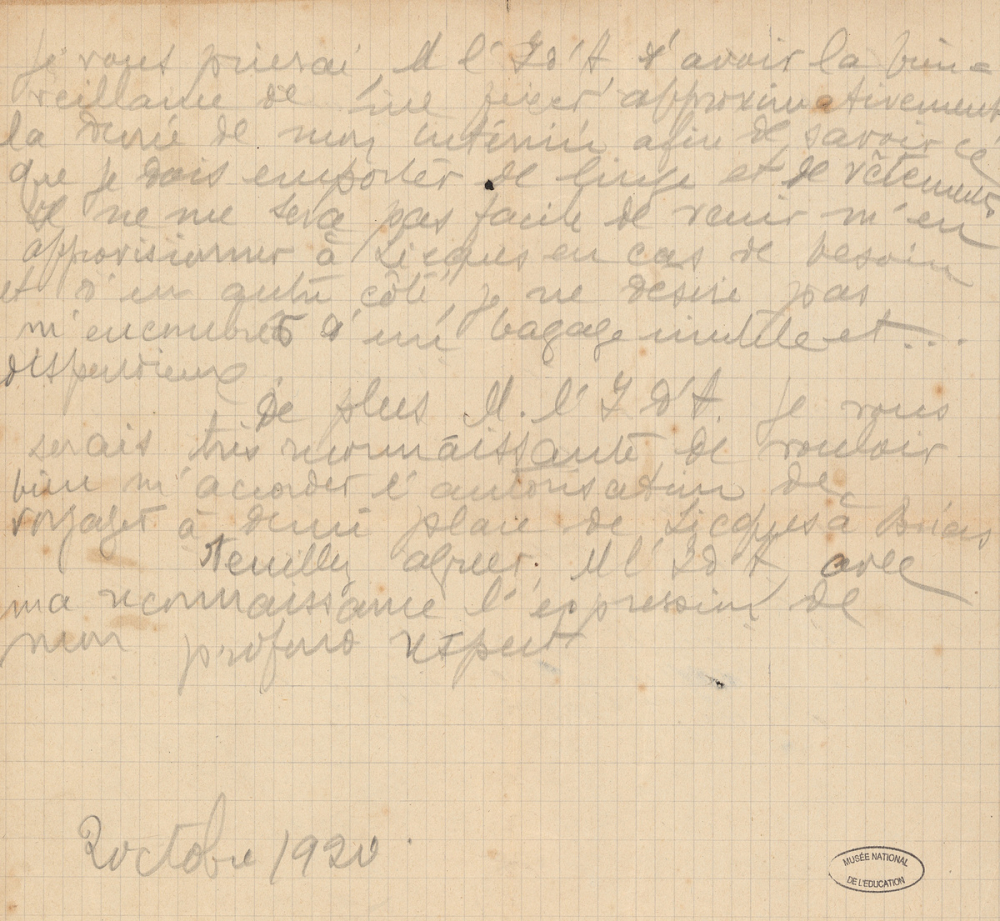 Je vous prierai M l'I d'A d'avoir la bien=
veillance de me fixer approximativement
la durée de mon intérim afin de savoir ce
que je dois emporter de linge et de vêtements
Il ne me sera pas facile de venir m'en
approvisionner à Licques en cas de besoin
et d'un autre côté, je ne desire pas
m'encombrer d'un bagage inutile et ...
dispendieux.
De plus M. l'I d'A. je vous
serais très reconnaissante de vouloir
bien m'accorder l'autorisation de
voyager à demi place de Licques à
Veuillez agréer, M l'I d'A avec
ma reconnaissance l'expression de
mon profond respect
2 octobre 1920
MUSÉE NATIONAL
DE L'EDUCATION